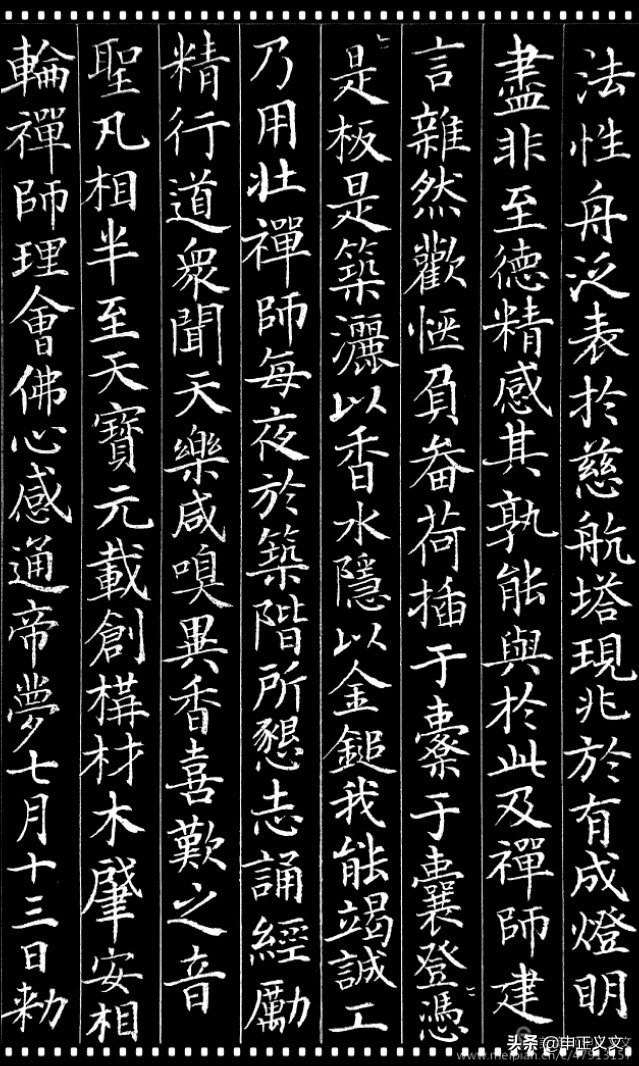 法性舟泛表於慈航塔現兆於有成燈明
盡非至德精感其孰能與於此及禪師建
言雜然歡愜負畚荷插于橐于囊登〻憑
〻是板是築灑以香水隱以金鎚我能竭誠工
乃用壯禪師每夜於築階所懇志誦經勵
精行道衆聞天樂咸嗅異香喜歎之音
聖凡相半至天寶元載創構材木肇安相
輪禪師理會佛心感通帝夢七月十三日勑
头条 @申正义文
www.meipian.cn/c/47913157